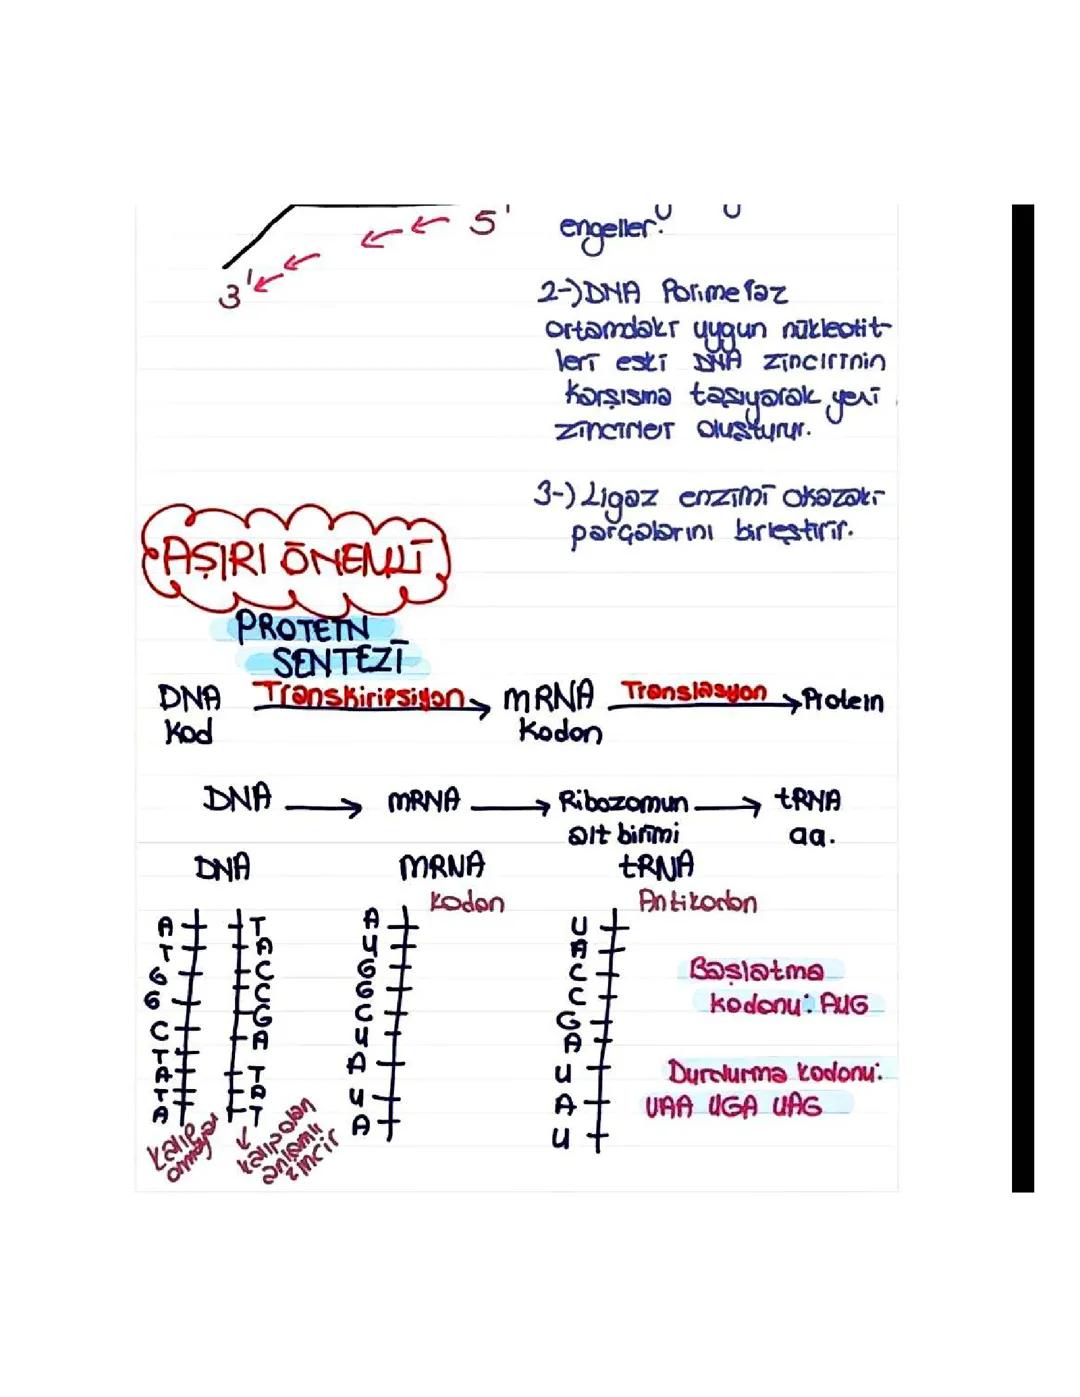 5'
3'
engeller.
2-) DNA Polimeraz
ortamdakı uygun nükleotit-
leri eski DNA zincirinin
karşısına taşıyarak yeni
zincirler oluşturur.
3-) Ligaz enzimi okazakı
parçalarını birleştirir.
AŞIRI ÖNEMLİ
PROTEİN
SENTEZİ
DNA Transkiripsiyon mRNA Translasyon Protein
Kod Kodon
DNA mRNA Ribozomun tRNA
alt birimi aa.
DNA mRNA tRNA
Kodon Antikodon
A T A U
T A U A
G C G C
G C G C
C G C G
T A U A
A T A U
T A U A
A T A U
Başlatma
kodonu: AUG
Durdurma kodonu:
UAA UGA UAG
Kalıp
olmayan
kalıp olan
anlamlı
zincir